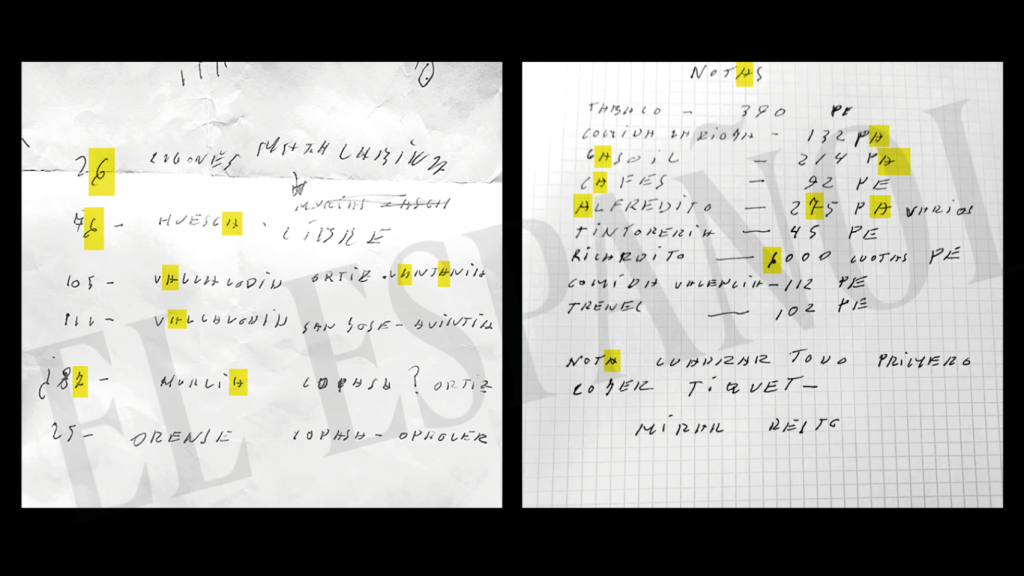 26 LUGONES MATA LABINA
76 - HUESCA - LIBRE
105 - VALLADOLID ORTIZ
111 - VALLADOLID SAN JOSE - QUINTIN
¿82 - MURCIA COPASA? ORTIZ
25 - ORENSE COPASA - OPROLER
NOTAS
TABACO - 390 PE
COMIDA - 132 PA
GASOIL - 214 PA
CAFES - 92 PE
ALFREDITO - 275 PA VARIOS
TINTORERIA - 45 PE
RICARDITO - 6000 CUOTAS PE
COMIDA VALENCIA - 112 PE
TRENEC - 102 PE
NOTA CUADRAR TODO PRIMERO
COJER TIQUET -
MIRAR RESTO
EL ESPAÑOL